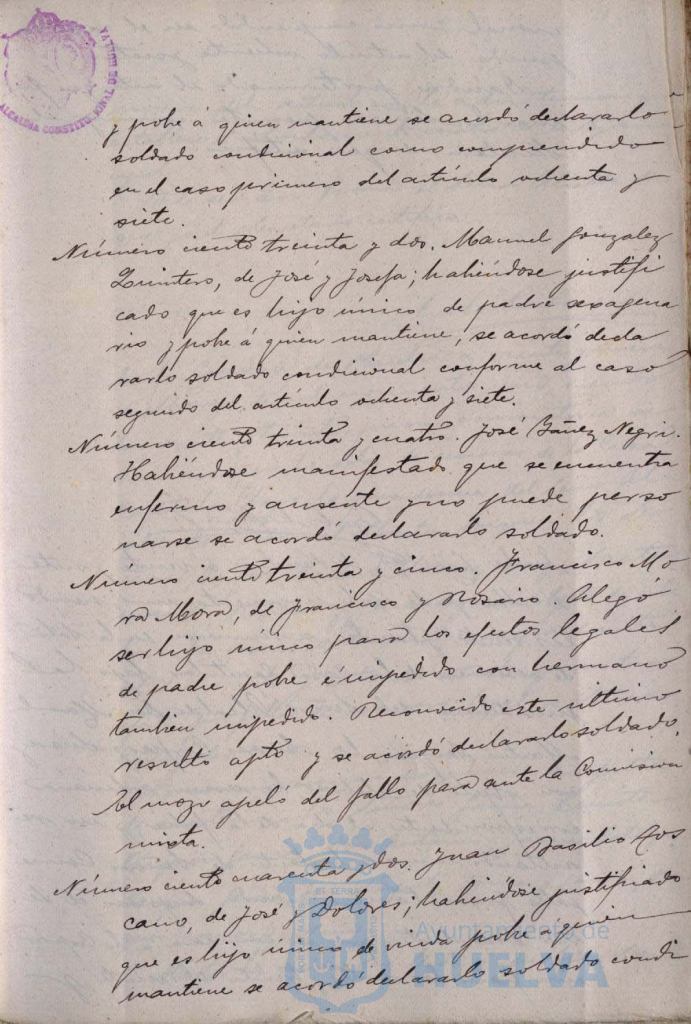 ALCALDIA CONSTITUCIONAL DE HUELVA
y pobre á quien mantiene se acordó declararlo
soldado condicional como comprendido
en el caso primero del artículo ochenta y
siete.
Número ciento treinta y dos. Manuel Gonzalez
Quintero, de José y Josefa; habiéndose justifi
cado que es hijo único de padre sexagena
rio y pobre á quien mantiene, se acordó decla
rarlo soldado condicional conforme al caso
segundo del artículo ochenta y siete.
Número ciento treinta y cuatro. José Báñez Negri.
Habiéndose manifestado que se encuentra
enfermo y ausente y no puede perso
narse se acordó declararlo soldado.
Número ciento treinta y cinco. Francisco Mo
ra Mora, de Francisco y Rosario. Alegó
ser hijo único para los efectos legales
de padre pobre é impedido con hermano
tambien impedido. Reconocido este ultimo
resultó apto y se acordó declararlo soldado.
El mozo apeló del fallo para ante la Comision
mixta.
Número ciento cuarenta y dos. Juan Basilio
cano, de José y Dolores; habiéndose justificado
que es hijo único de viuda pobre á quien
mantiene se acordó declararlo soldado condi
Ayuntamiento de
HUELVA